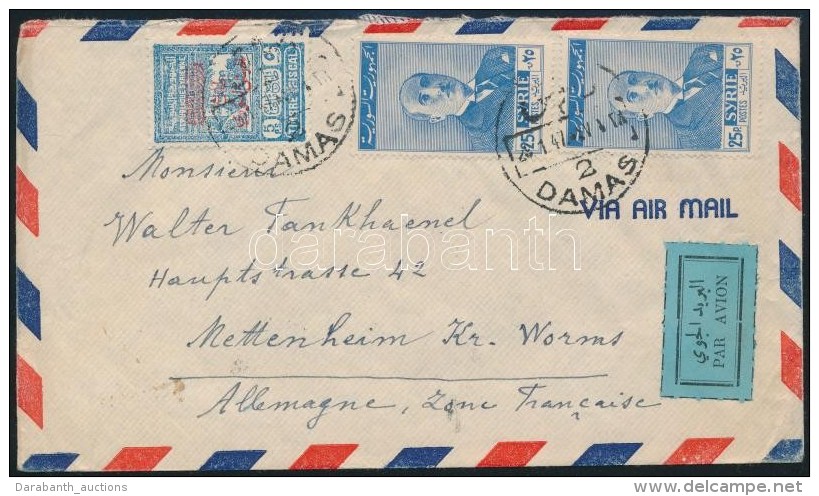 TIMBRE FISCAL
5
الجمهورية السورية
٢٥
SYRIE
POSTES
25P
الجمهورية السورية
٢٥
SYRIE
POSTES
25P
DAMAS
2
DAMAS
VIA AIR MAIL
Monsieur
Walter Tankhaenel
Hauptstrasse 42
Mettenheim Kr. Worms
Allemagne, Zone Française
البريد الجوي
PAR AVION
darabanth
Darabanth_auctions
delcampe.net